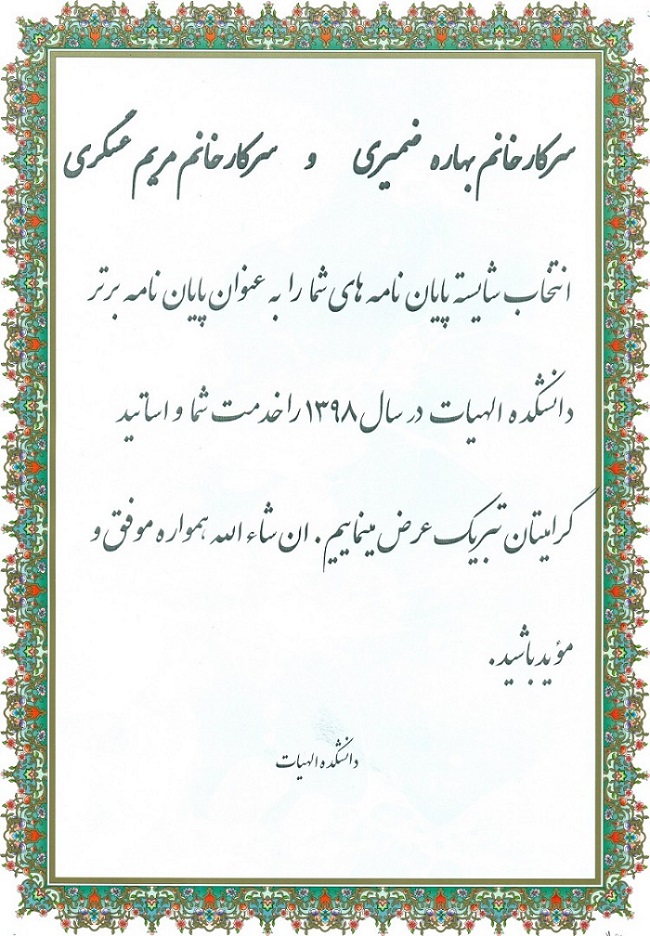 سرکار خانم بهاره ضمیری و سرکار خانم مریم عسگری
انتخاب شایسته پایان نامه های شما را به عنوان پایان نامه برتر
دانشکده الهیات در سال ۱۳۹۸ را خدمت شما و اساتید
گرامیتان تبریک عرض مینماییم . ان شاء الله همواره موفق و
مؤید باشید .
دانشکده الهیات